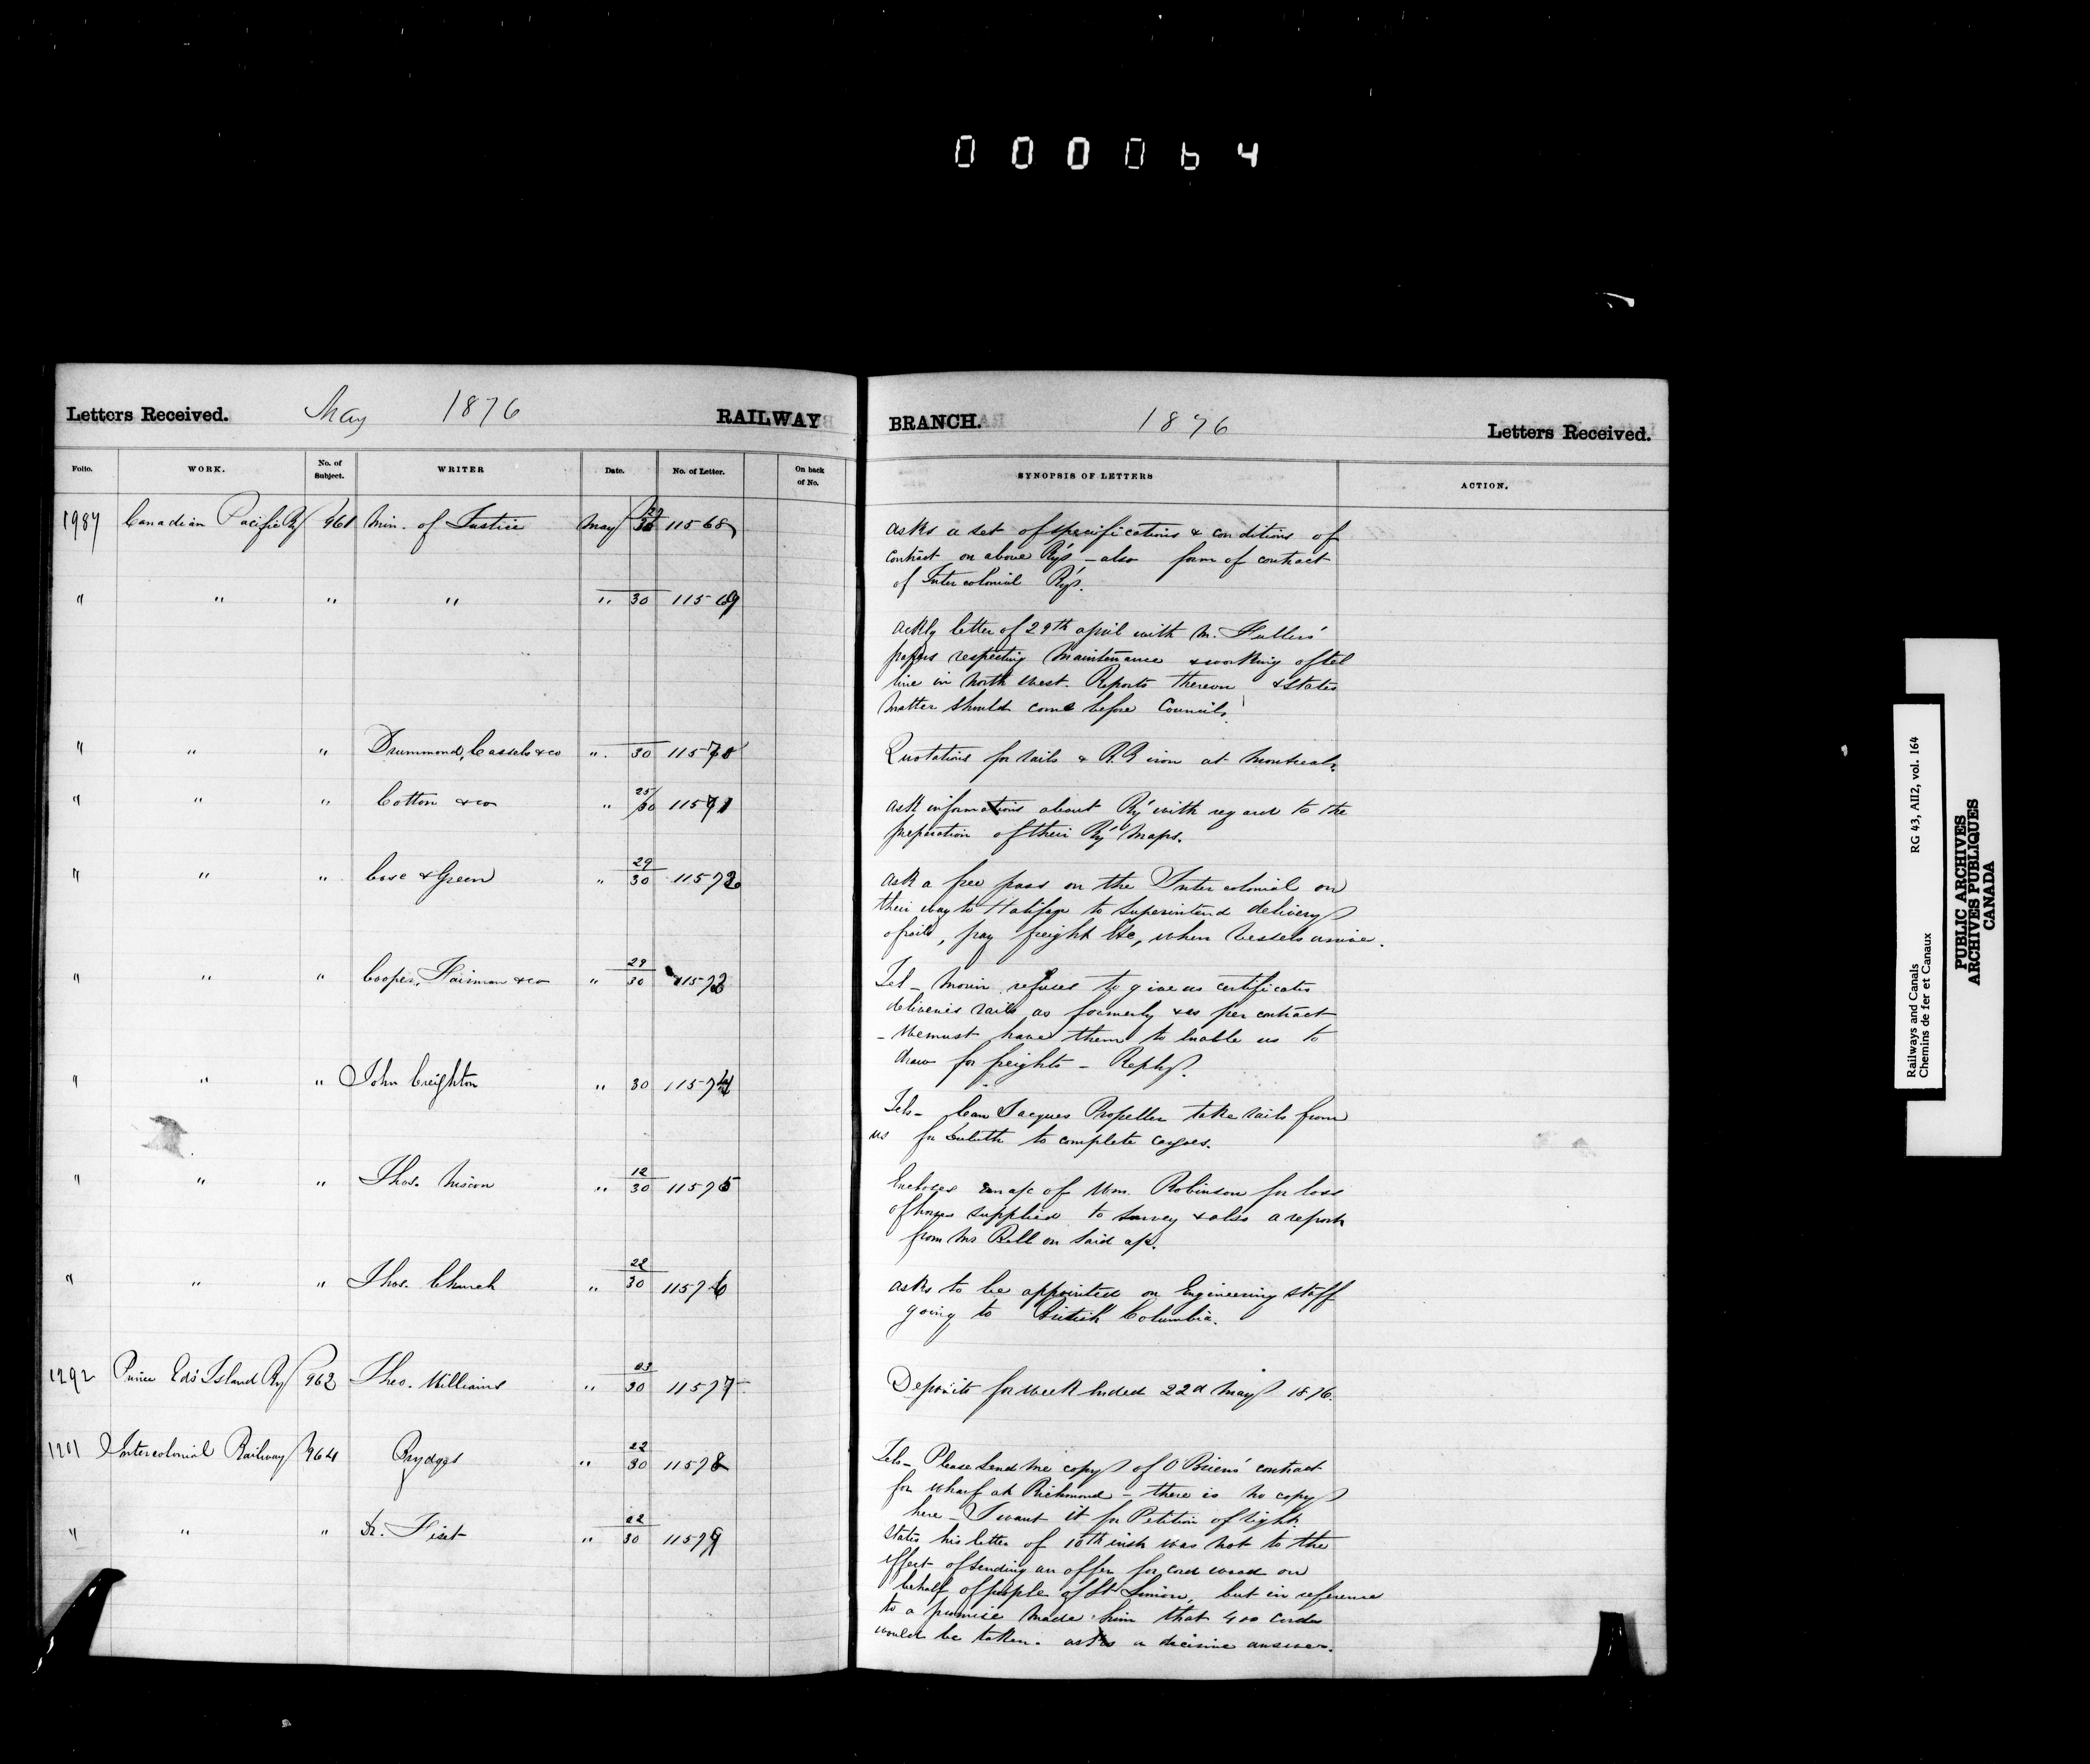 000064
Letters Received. May 1876 RAILWAY
Folio. WORK. No. of Subject. WRITER Date. No. of Letter. On back of No.
1987 Canadian Pacific Ry 961 Min. of Justice May 29/30 11568
" " " " " 30 11569
" " " Drummond, Cassels & co " 30 11570
" " " Cotton & co " 25/30 11571
" " " Cose & Green " 29/30 11572
" " " Cooper, Fairman & co " 29/30 11573
" " " John Creighton " 30 11574
" " " Thos. Nixon " 12/30 11575
" " " Thos. Church " 22/30 11576
1292 Prince Ed's Island Ry 962 Theo. Williams " 23/30 11577
1201 Intercolonial Railway 964 Brydges " 22/30 11578
" " " Dr. Fiset " 22/30 11579
BRANCH. 1876 Letters Received.
SYNOPSIS OF LETTERS ACTION.
asks a set of specifications & conditions of
contract on above Ry's - also form of contract
of Intercolonial Ry's.
Ackly letter of 29th april with M. Fuller's
papers respecting maintenance & working of tel
line in North West. Reports thereon & states
matter should come before Council.
Quotations for rails & R.R iron at Montreal.
ask informations about Ry' with regard to the
preparation of their Ry' Maps.
ask a free pass on the Intercolonial on
their way to Halifax to superintend delivery
of rails, pay freight &c, when vessels arrive.
Tel - Morin refuses to give us certificates
deliveries rails as formerly & as per contract
- We must have them to enable us to
draw for freights - Reply.
Tel - Can Jacques Propeller take rails from
us for Duluth to complete cargoes.
Encloses an a/c of Wm. Robinson for loss
of horses supplied to survey & also a report
from Mr Bell on said a/c.
asks to be appointed on Engineering staff
going to British Columbia.
Deposits for week ended 22d May 1876.
Tel - Please send me copy of O'Brien's contract
for wharf at Richmond - there is no copy
here - I want it for Petition of right.
States his letter of 10th inst was not to the
effect of sending an offer for cord wood on
behalf of people of St Simon, but in reference
to a promise made him that 400 cords
would be taken. asks a decisive answer.
Railways and Canals RG 43, AII2, vol. 164
Chemins de fer et Canaux
PUBLIC ARCHIVES
ARCHIVES PUBLIQUES
CANADA